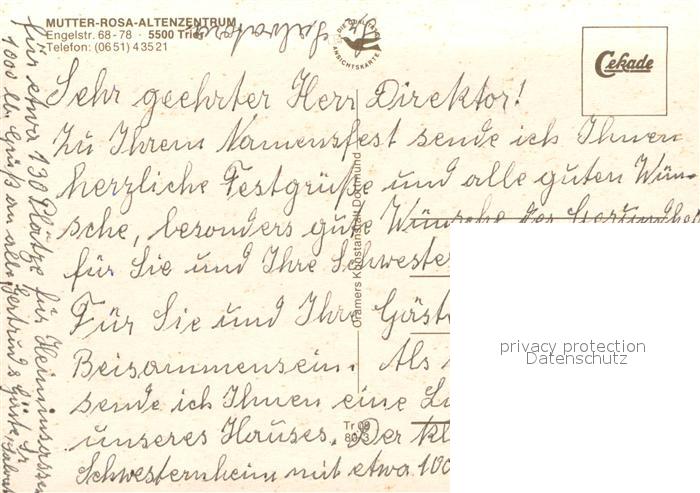 MUTTER-ROSA-ALTENZENTRUM
Engelstr. 68-78 · 5500 Trier
Telefon: (0651) 43521
DIE QUALITÄTS
ANSICHTSKARTE
Cekade
Sehr geehrter Herr Direktor!
Zu Ihrem Namensfest sende ich Ihnen
herzliche Festgrüße und alle guten Wün-
sche, besonders gute Wünsche der
für Sie und Ihre Schwester
Für Sie und Ihre Gäst
Beisammensein. Als
sende ich Ihnen eine
unseres Hauses. Der kl
Schwesternheim mit etwa 100
für etwa 130 Plätze für Heiminsassen
Gruß an alle
Cramers Kunstanstalt Dortmund
Tr 09
privacy protection
Datenschutz